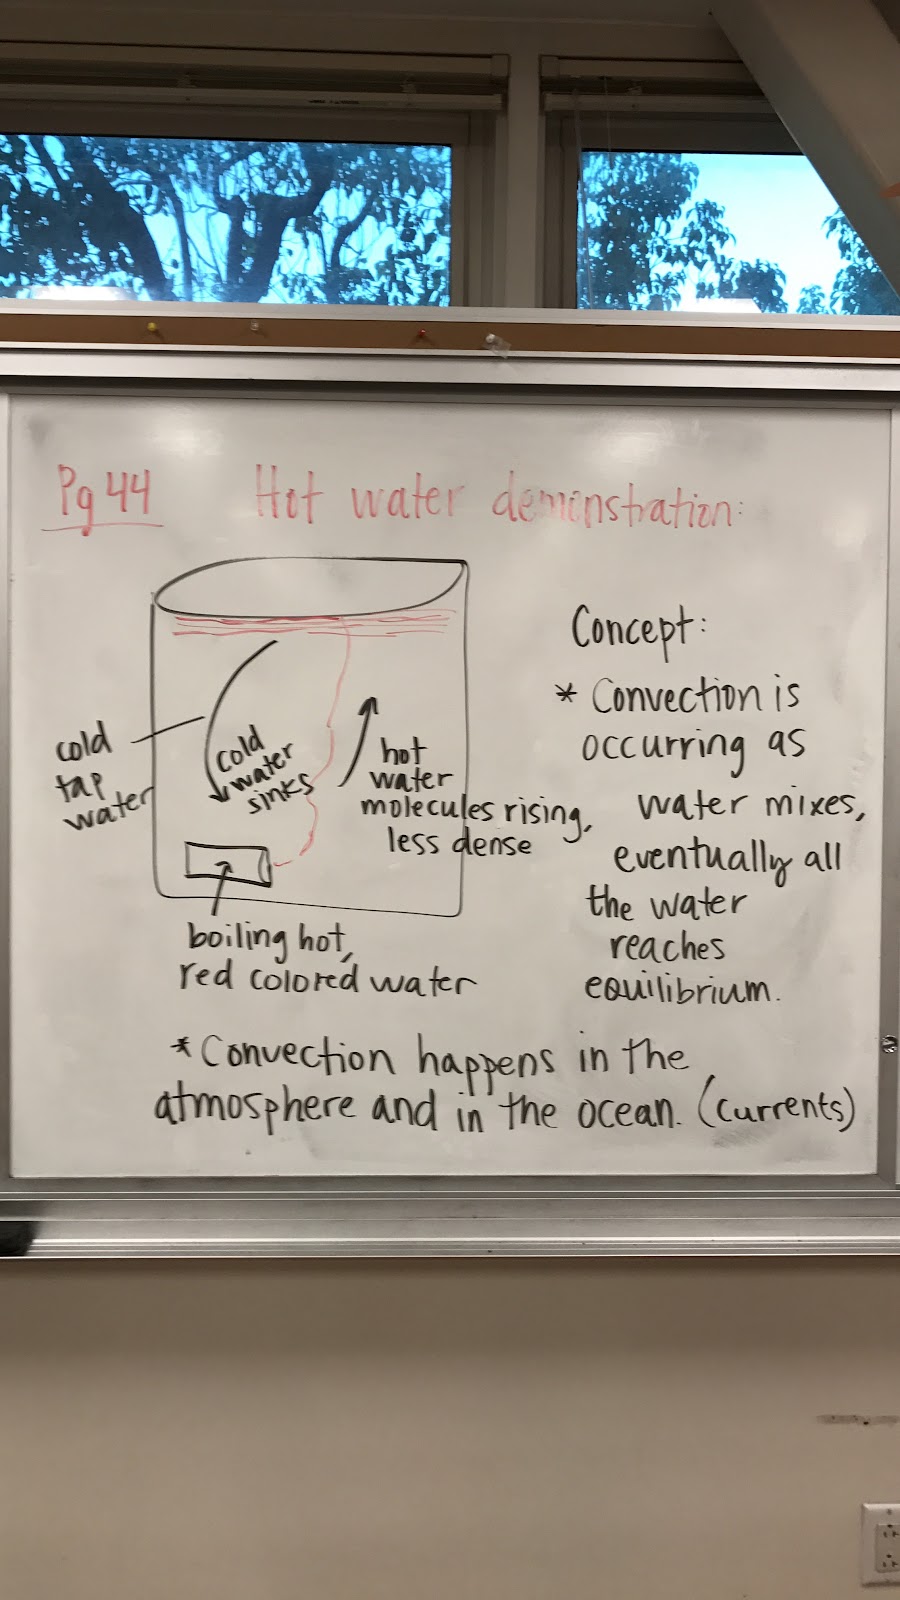 Pg 44 Hot water demonstration:
cold
tap
water
cold
water
sinks
hot
water
molecules rising,
less dense
boiling hot,
red colored water
Concept:
* Convection is
occurring as
water mixes,
eventually all
the water
reaches
equilibrium.
* Convection happens in the
atmosphere and in the ocean. (currents)